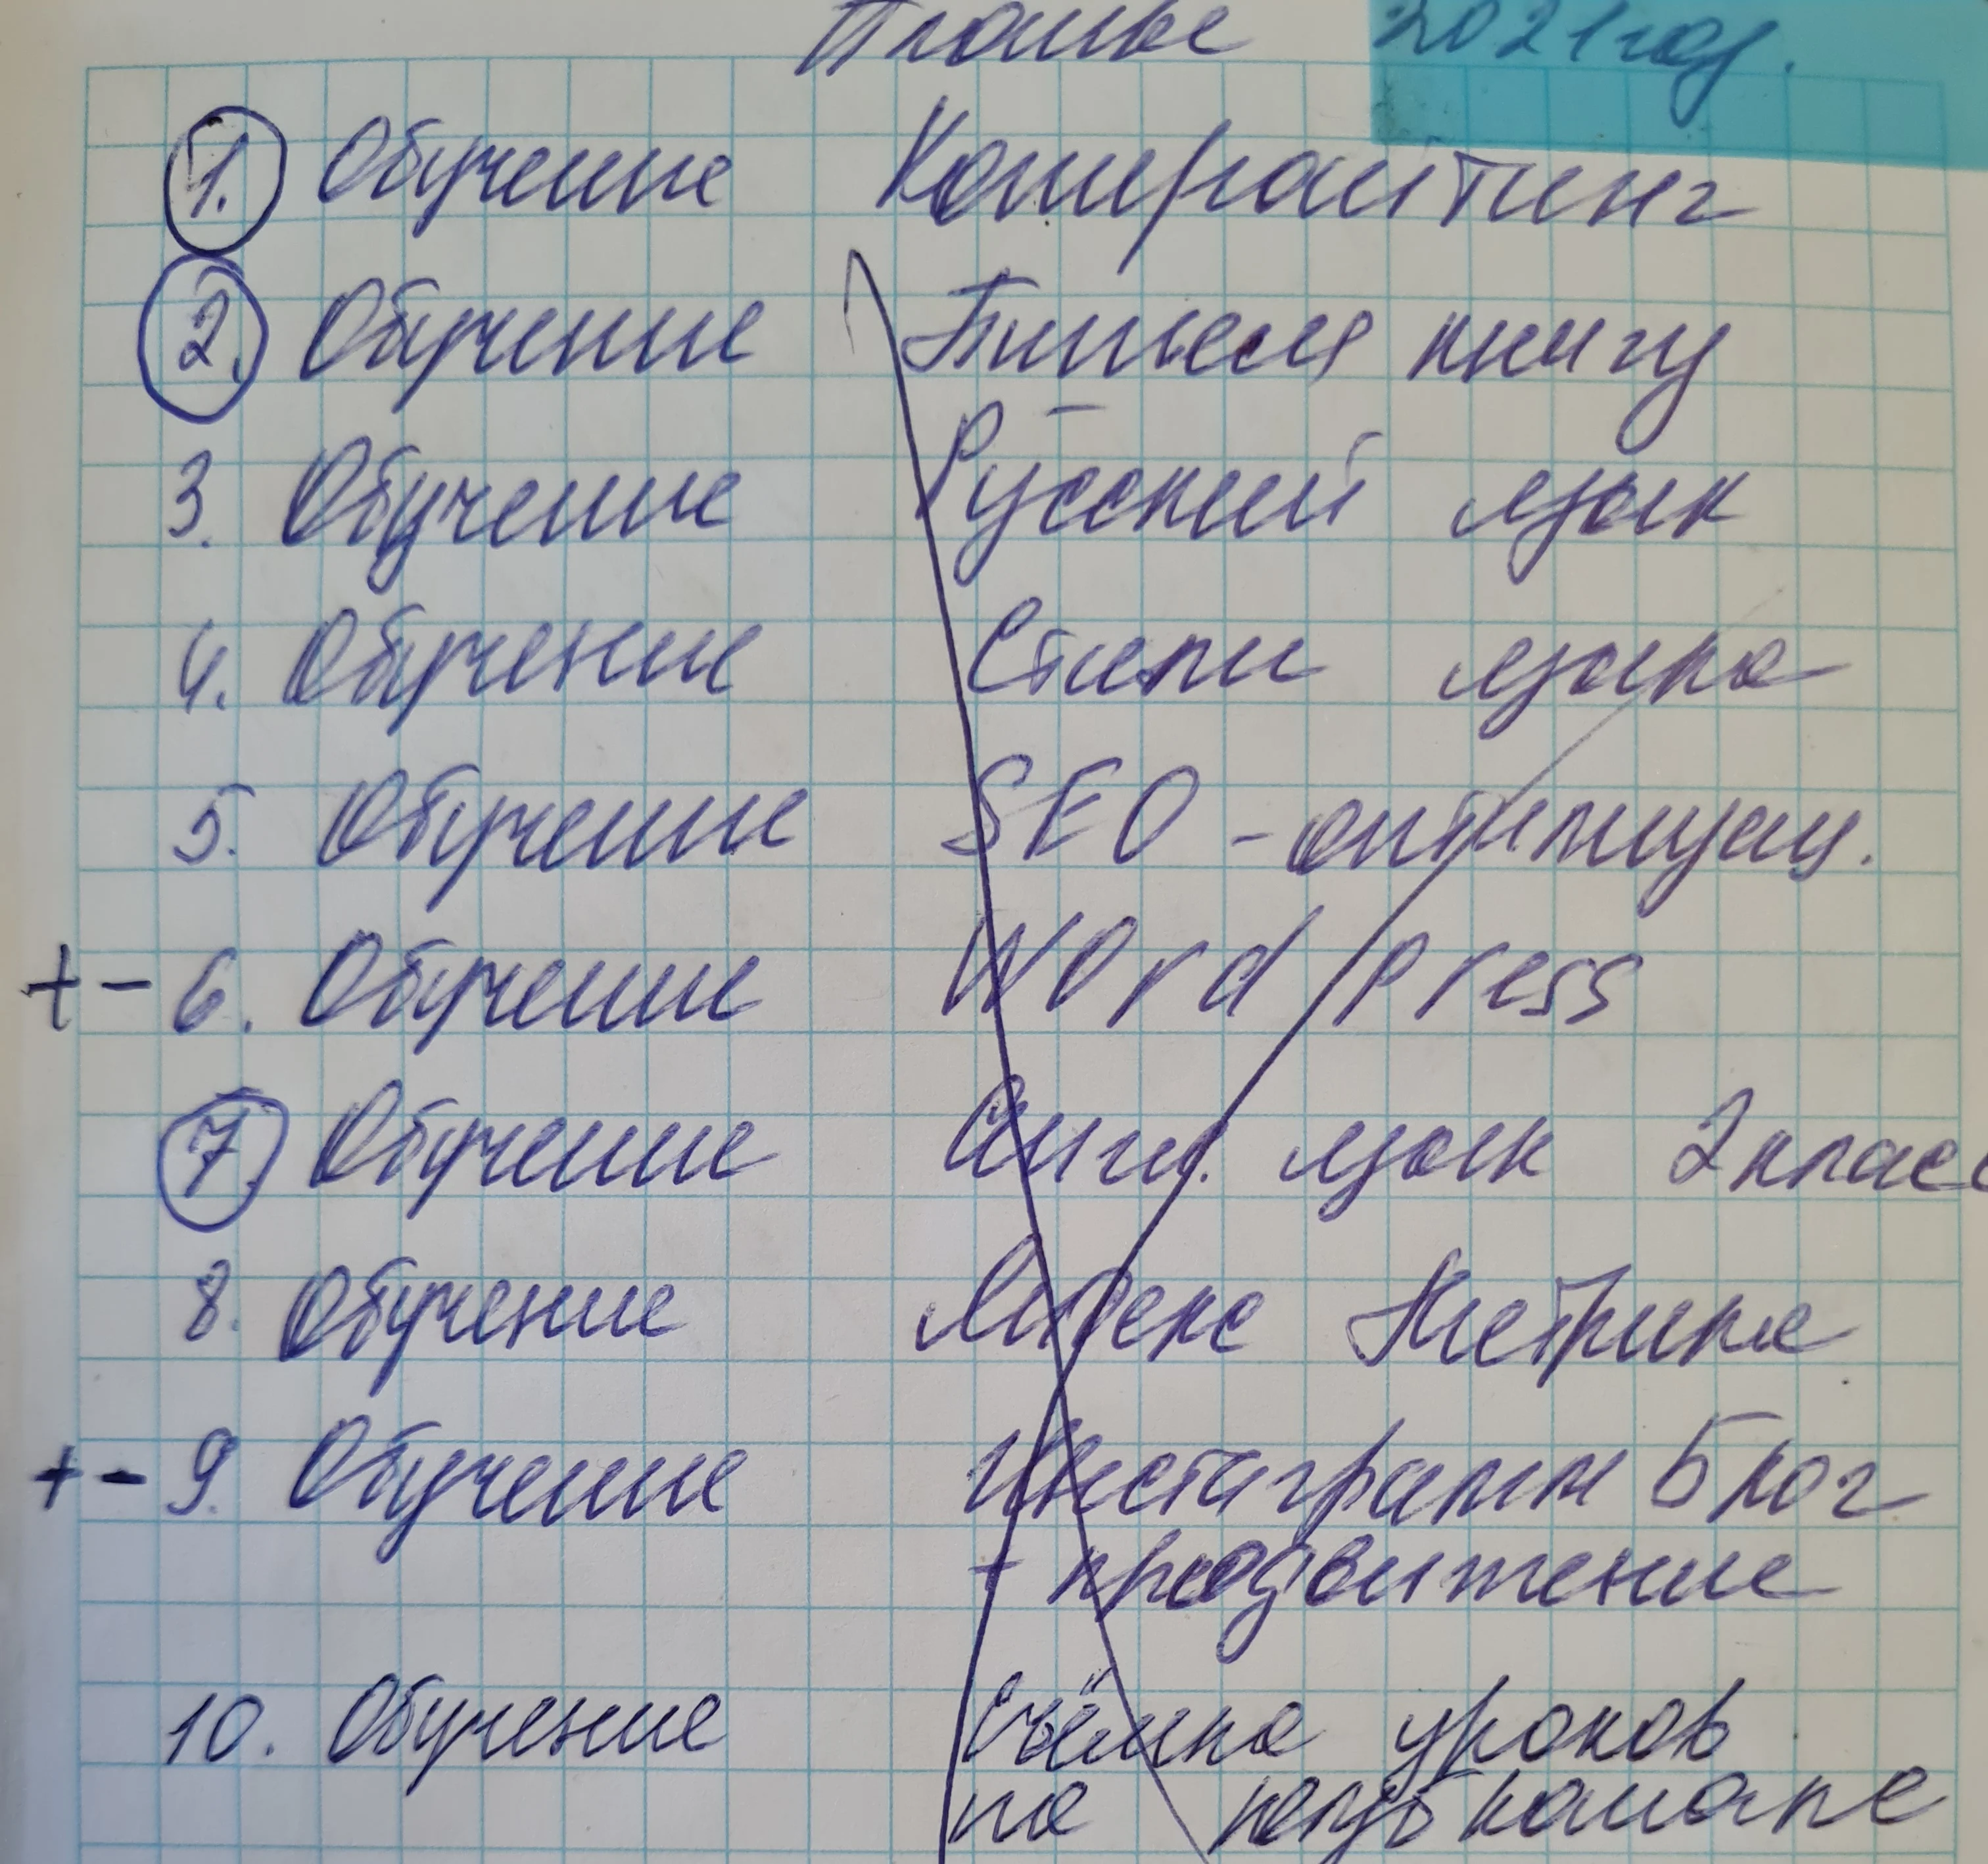 Планы 2021 год.
1. Обучение Копирайтинг
2. Обучение Пишем книгу
3. Обучение Русский язык
4. Обучение Стили языка
5. Обучение SEO - оптимизац.
+ - 6. Обучение WordPress
7. Обучение Англ. язык 2 класс
8. Обучение Яндекс Метрика
+ - 9. Обучение Инстаграмм Блог
+ продвижение
10. Обучение Съёмка уроков
на